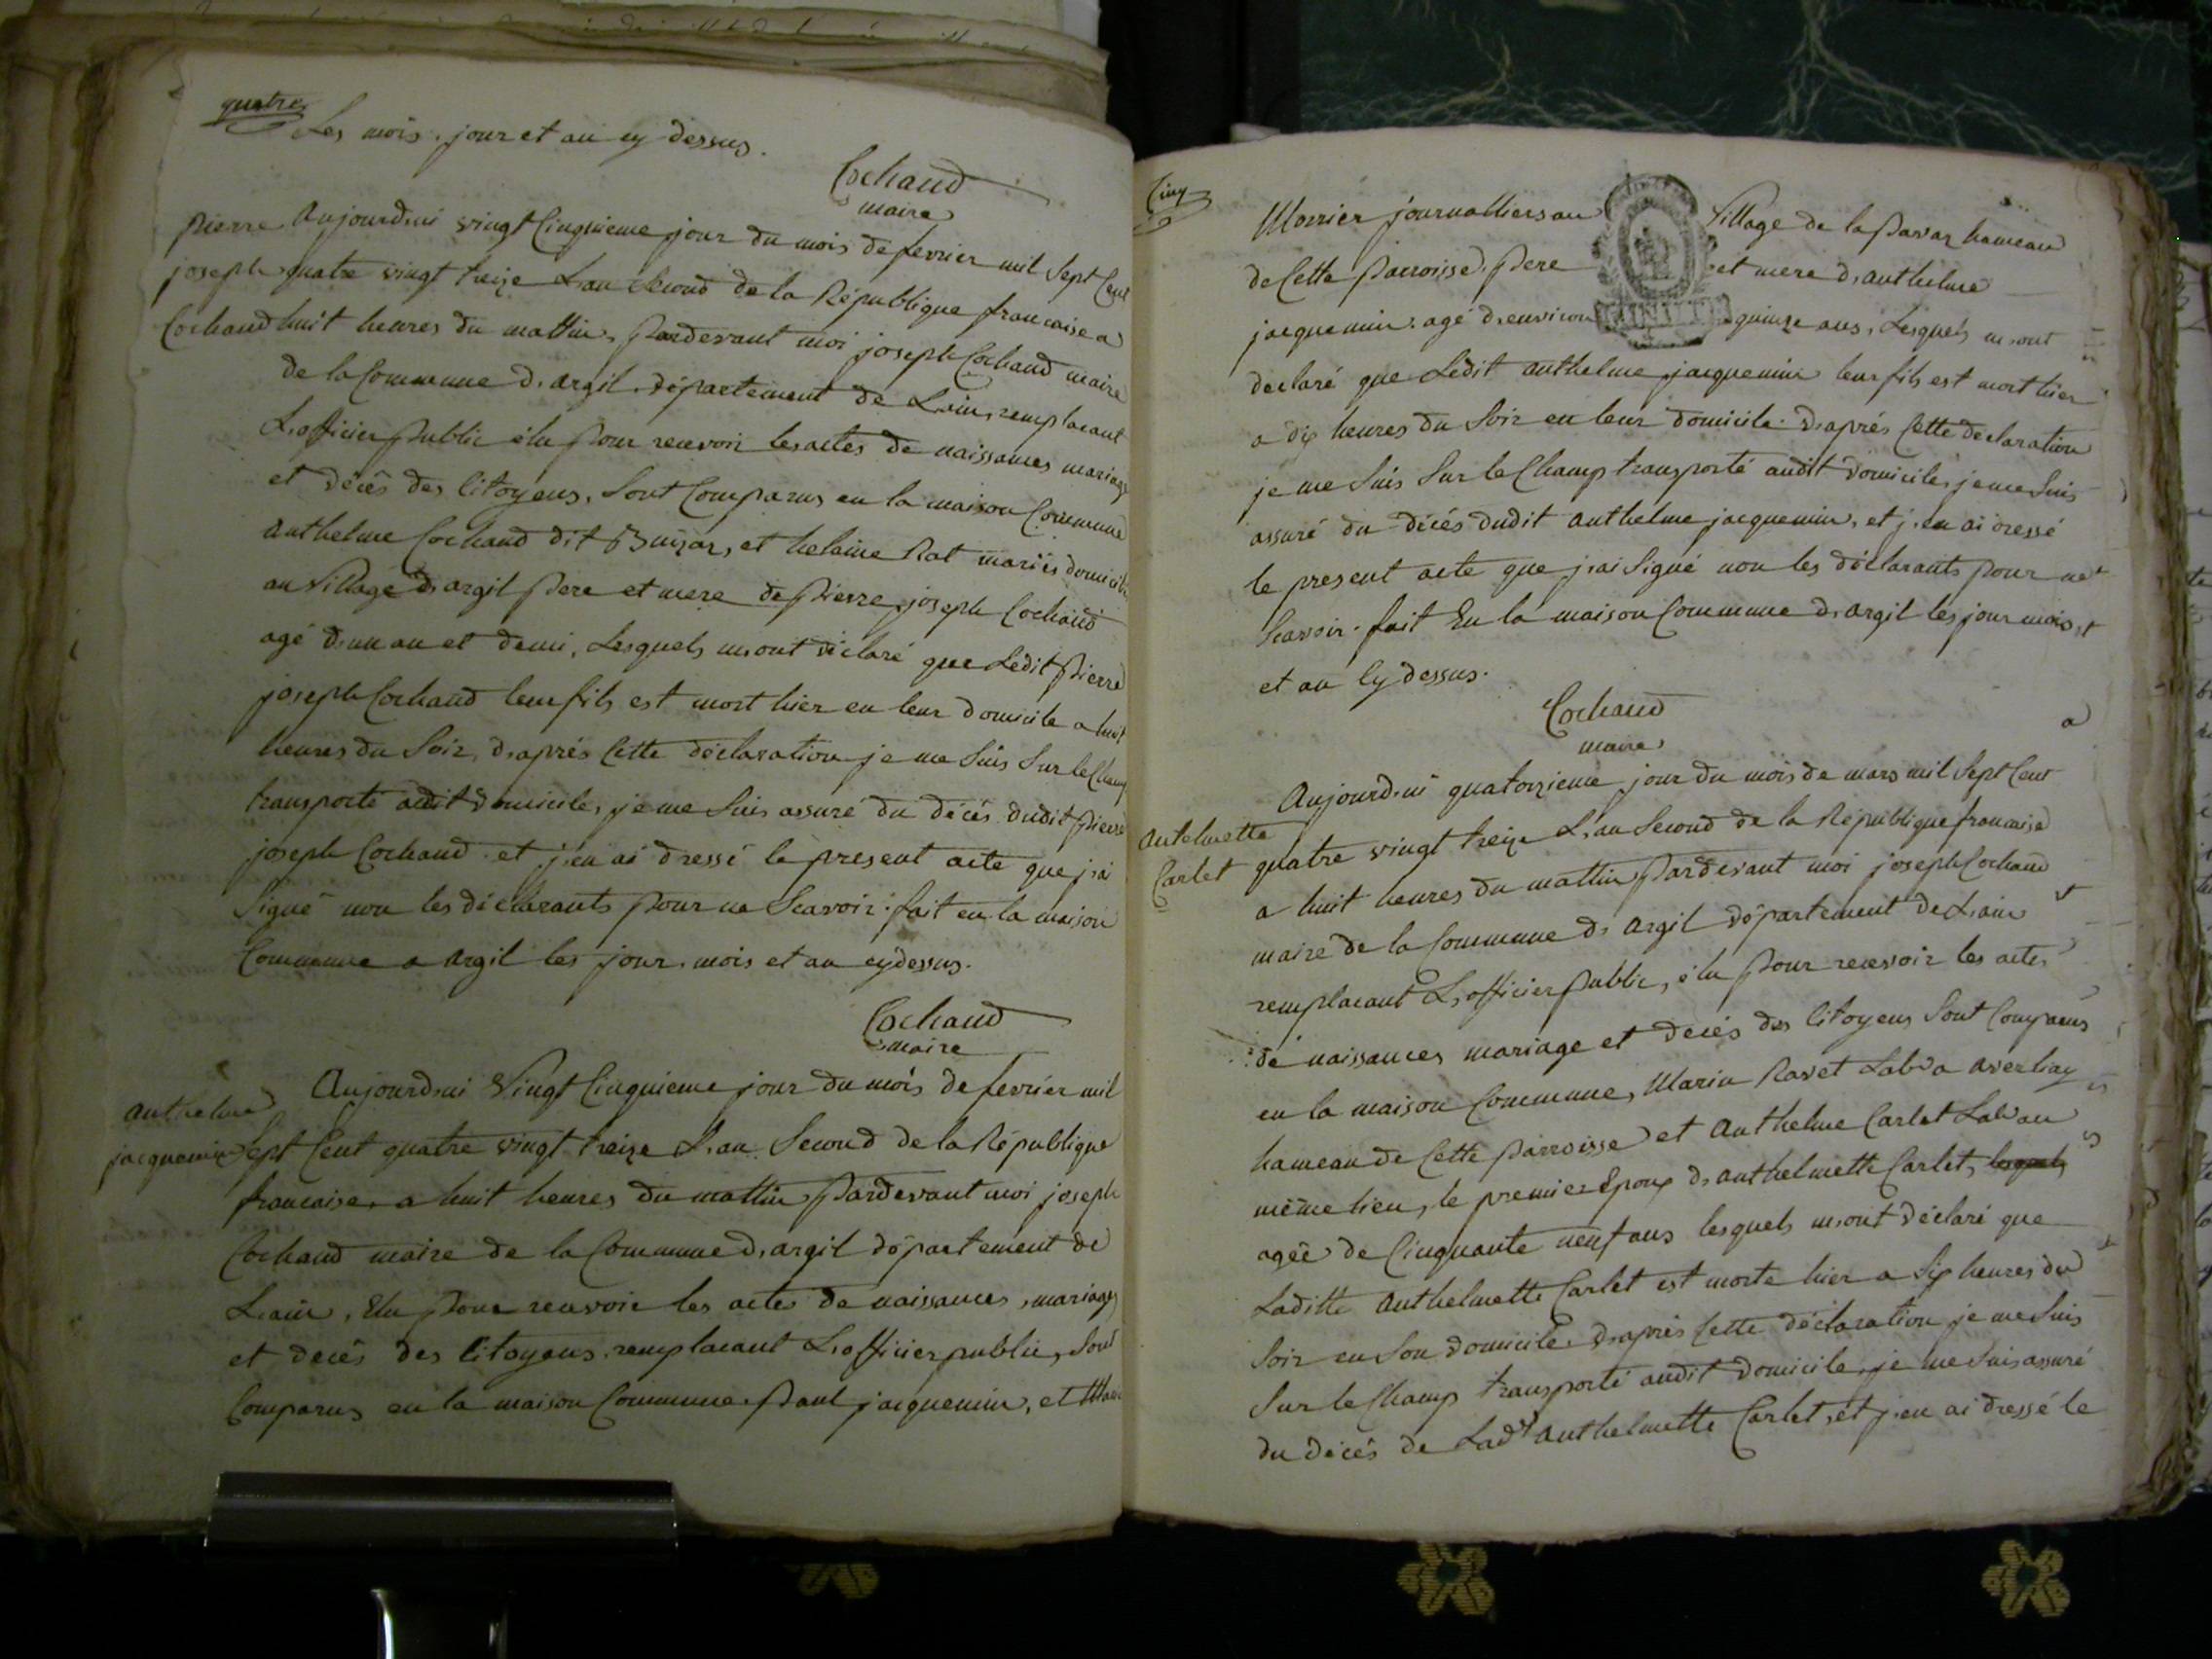 quatre
Les mois, jour et an cy dessus.
Cochaud
maire
pierre
joseph
Cochaud
Aujourd,ui vingt Cinquieme jour du mois de fevrier mil Sept Cent
quatre vingt treize L,an Second de la République francaise a
huit heures du mattin, Pardevant moi joseph Cochaud maire
de la Commune d,argil, département de L,ain, remplacant
L,officier Public élu Pour recevoir les actes de naissances mariage
et décés des Citoyens, Sont Comparus en la maison Commune
anthelme Cochaud dit Buizar, et helaine Rat mariés
au village d,argil Pere et mere de Pierre joseph Cochaud
agé d,un an et demi, Lesquels m,ont déclaré que Ledit Pierre
joseph Cochaud leur fils est mort hier en leur domicile a huit
heures du Soir, d,aprés Cette déclaration je me Suis Sur le Champ
transporté audit domicile, je me Suis assuré du décés dudit Pierre
joseph Cochaud et j,en ai dressé le present acte que j,ai
Signé non les déclarants Pour ne Scavoir. fait en la maison
Commune a argil les jour, mois et an cy dessus.
Cochaud
maire
anthelme
jacquemin
Aujourd,ui Vingt Cinquieme jour du mois de fevrier mil
Sept Cent quatre vingt treize L,an Second de la République
francaise, a huit heures du mattin Pardevant moi joseph
Cochaud maire de la Commune d,argil département de
L,ain, élu Pour recevoir les actes de naissances, mariages
et decés des Citoyens, remplacant L,officier public, Sont
Comparus en la maison Commune, Paul jacquemin, et
Cinq
Morrier journalliers au village de la Pavaz hameau
de Cette Parroisse, Pere et mere d,anthelme
jacquemin, agé d,environ quinze ans, Lesquels m,ont
déclaré que Ledit anthelme jacquemin leur fils est mort hier
a dix heures du Soir en leur domicile. d,aprés Cette déclaration
je me Suis Sur le Champ transporté audit domicile, je me Suis
assuré du décés dudit anthelme jacquemin, et j,en ai dressé
le present acte que j,ai Signé non les déclarants Pour ne
Scavoir. fait En la maison Commune d,argil les jour mois
et an Cy dessus.
Cochaud
maire
Antelmette
Carlet
Aujourd,ui quatorzieme jour du mois de mars mil Sept Cent
quatre vingt treize L,an Second de la République francaise
a huit heures du mattin Pardevant moi joseph Cochaud
maire de la Commune d,argil département de L,ain
remplacant L,officier Public, élu Pour recevoir les actes
de naissances mariage et decés des Citoyens Sont Comparus
en la maison Commune, Marin Ravet Lab^r a averliaz
hameau de Cette Parroisse et Anthelme Carlet Lab^r au
même lieu, le premier Epoux d,anthelmette Carlet, lesquels
agée de Cinquante neuf ans lesquels m,ont déclaré que
Laditte Anthelmette Carlet est morte hier a Six heures du
Soir en Son domicile, d,aprés Cette déclaration je me Suis
Sur le Champ transporté audit domicile, je me Suis assuré
du décés de Lad^te anthelmette Carlet, et j,en ai dressé le